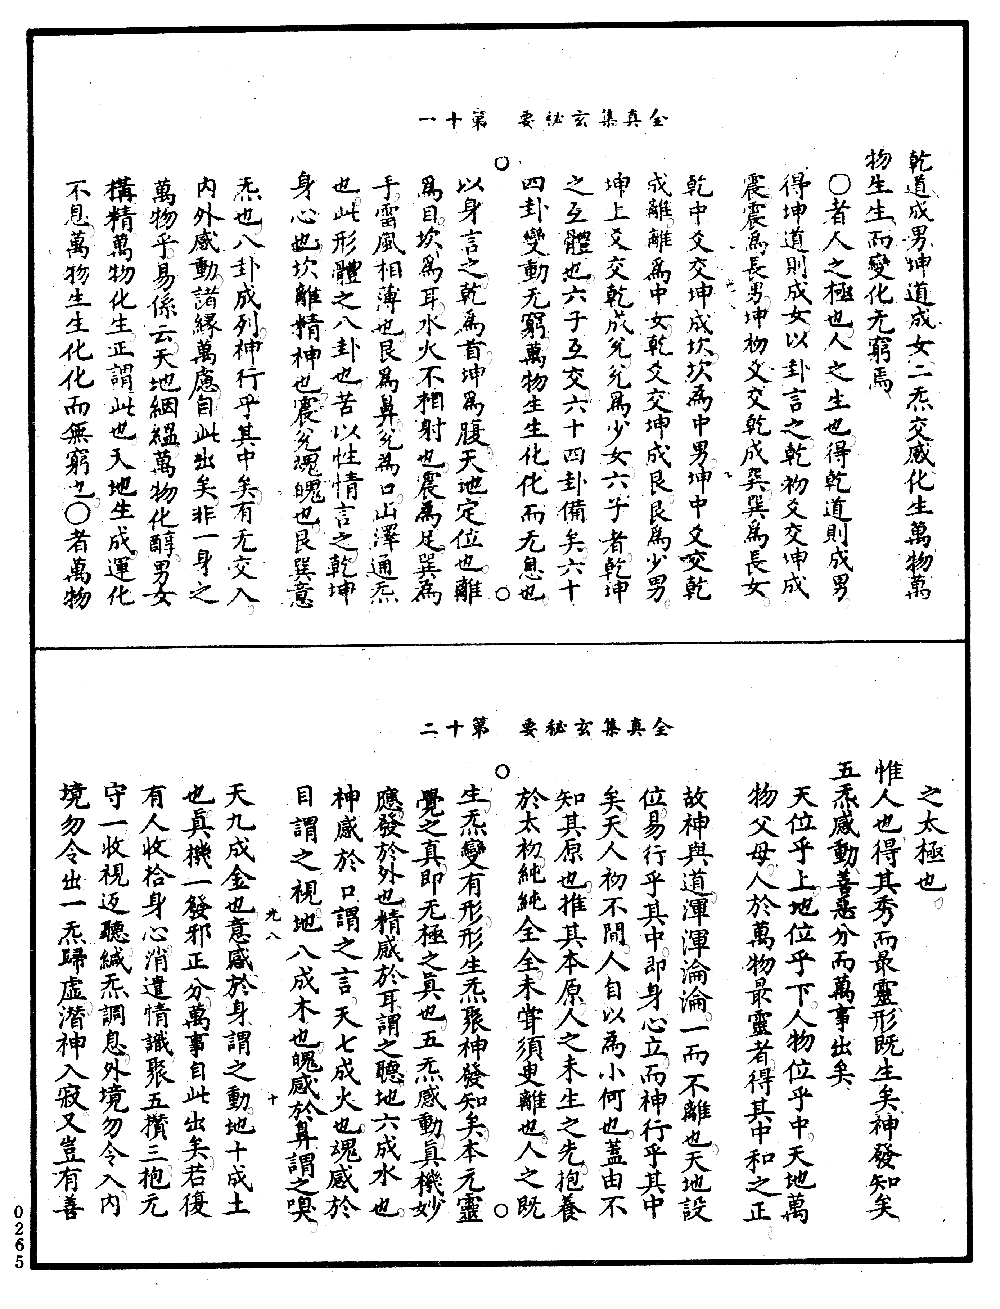 全真集玄秘要　第十一
乾道成男坤道成女二炁交感化生萬物萬
物生生而變化无窮焉
〇者人之極也人之生也得乾道則成男
得坤道則成女以卦言之乾初爻交坤成
震震爲長男坤初爻交乾成巽巽爲長女
乾中爻交坤成坎坎爲中男坤中爻交乾
成離離爲中女乾爻交坤成艮艮爲少男
坤上爻交乾成兌兌爲少女六子者乾坤
之互體也六子互交六十四卦備矣六十
四卦變動无窮萬物生生化化而无息也
以身言之乾爲首坤爲腹天地定位也離
爲目坎爲耳水火不相射也震爲足巽爲
手雷風相薄也艮爲鼻兌爲口山澤通炁
也此形體之八卦也苦以性情言之乾坤
身心也坎離精神也震兌魂魄也艮巽意
炁也八卦成列神行乎其中矣有无交入
內外感動諸緣萬慮自此出矣非一身之
萬物乎易係云天地絪縕萬物化醇男女
構精萬物化生正謂此也天地生成運化
不息萬物生生化化而無窮也〇者萬物
全真集玄秘要　第十二
之太極也
惟人也得其秀而最靈形既生矣神發知矣
五炁感動善惡分而萬事出矣
天位乎上地位乎下人物位乎中天地萬
物父母人於萬物最靈者得其中和之正
故神與道渾渾淪淪一而不離也天地設
位易行乎其中即身心立而神行乎其中
矣天人初不間人自以為小何也蓋由不
知其原也推其本原人之未生之先抱養
於太初純純全全未嘗須臾離也人之既
生炁變有形形生炁聚神發知矣本元靈
覺之真即无極之眞也五炁感動眞機妙
應發於外也精感於耳謂之聽地六成水也
神感於口謂之言天七成火也魂感於
目謂之視地八成木也魄感於鼻謂之嗅
九八
天九成金也意感於身謂之動地十成土
也眞機一發邪正分萬事自此出矣若復
有人收拾身心消遣情識聚五攢三抱元
守一收視返聽緘炁調息外境勿令入內
境勿令出一炁歸虛潛神入寂又豈有善
十
0265